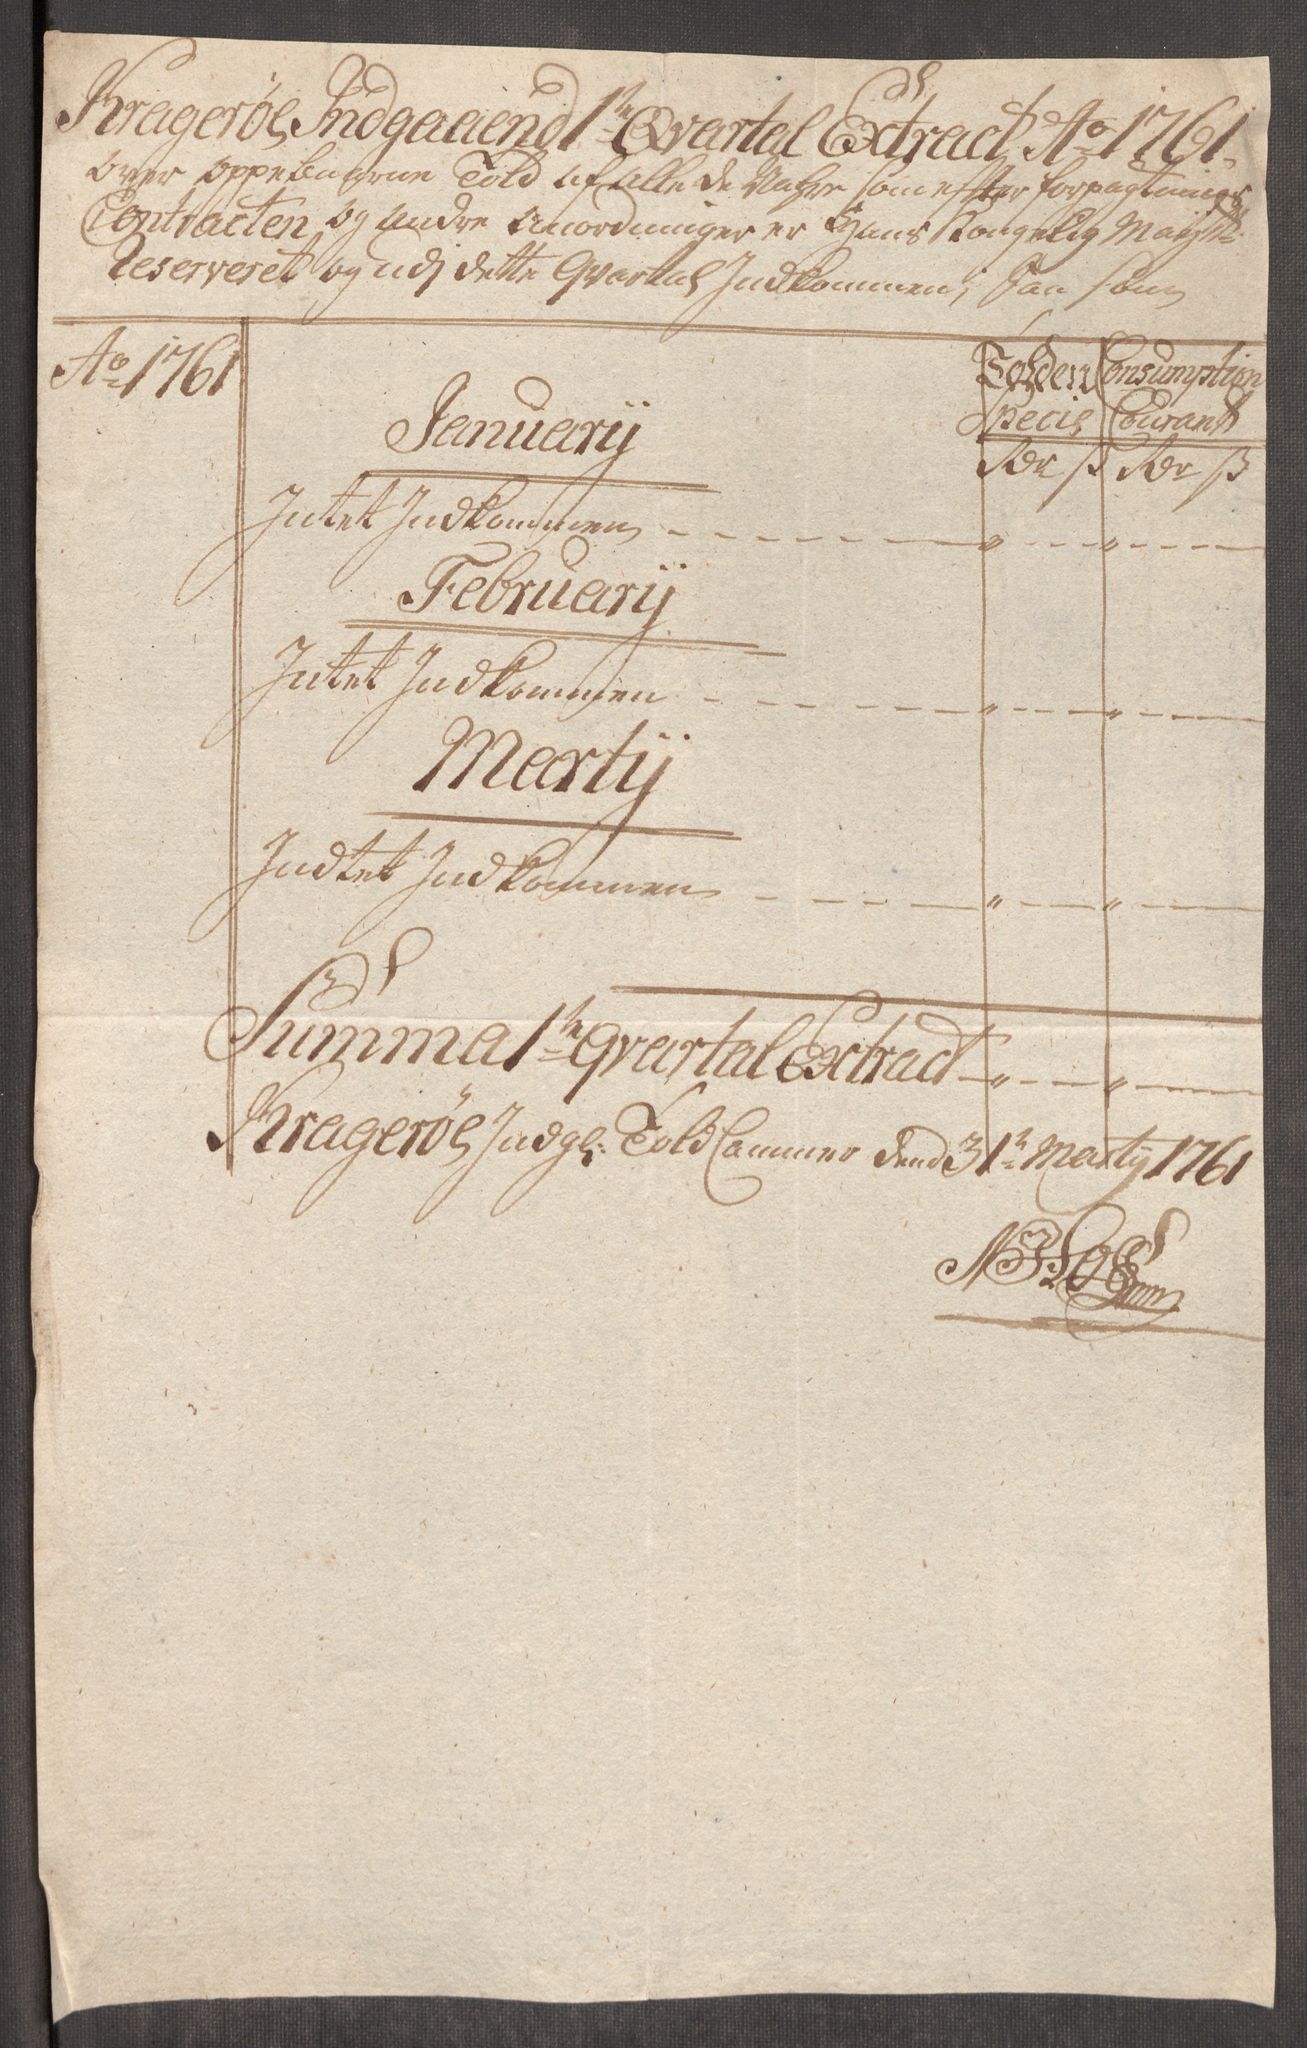 Kragerøes Indgaaend 1ste Qvartal Extract Ao 1761.
over oppebaarne Told af alle de Vahre som efter forpagtnings
Contracten og andre Anordninger er Hans Kongelig Mayts:
Reserveret og udj dette Qvartal Indkommen, Saa som
Ao 1761
Tolden Consumption
Specie Courant
Rdr ß Rdr ß
Januarij
Intet Indkommen - - - " - - " - - -
Februarij
Intet Indkommen - - - " - - " - - -
Martij
Indtet Indkommen - - - " - - " - - -
Summa 1ste Qvartal Extract - " - - " - - -
Kragerøes Indg: Told Cammer dend 31te Martij 1761